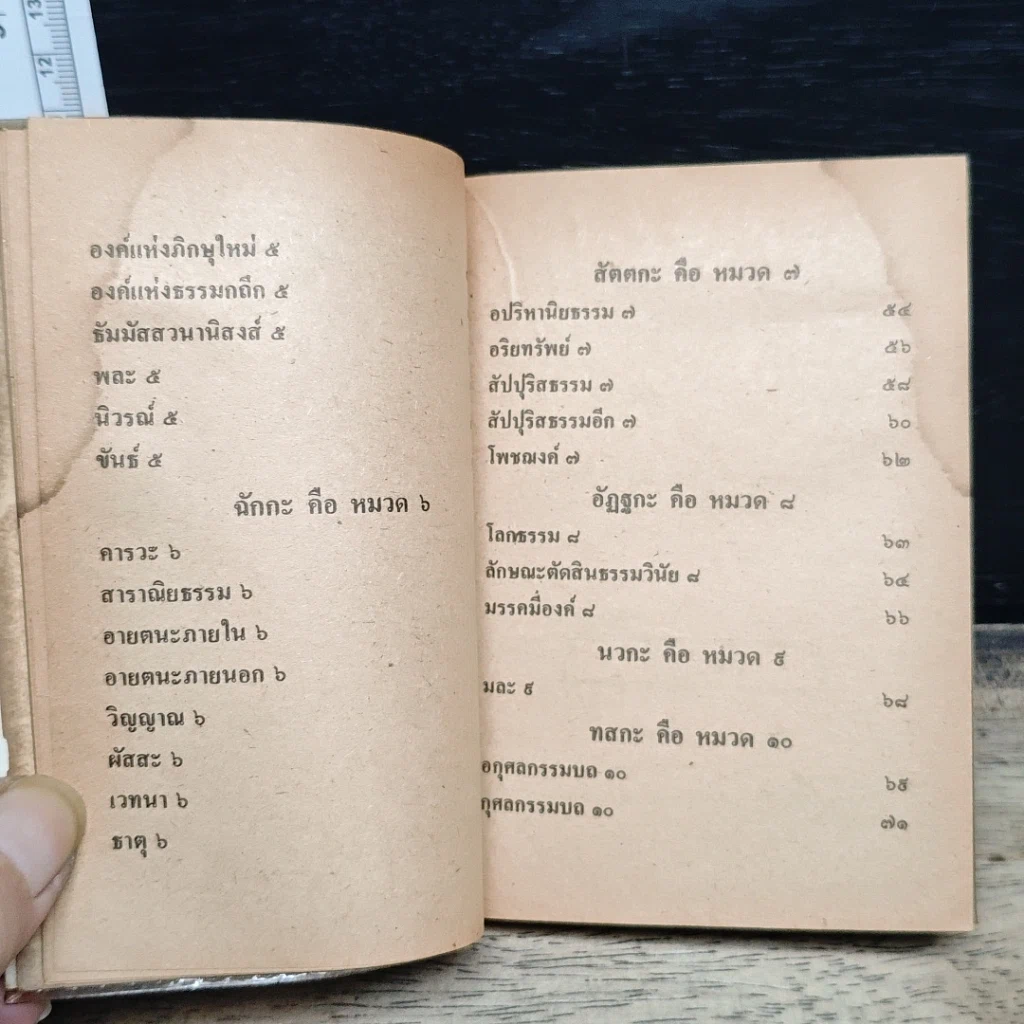 13
12
องค์แห่งภิกษุใหม่ ๕
องค์แห่งธรรมกถึก ๕
ธัมมัสสวนานิสงส์ ๕
พละ ๕
นิวรณ์ ๕
ขันธ์ ๕
ฉักกะ คือ หมวด ๖
คารวะ ๖
สาราณิยธรรม ๖
อายตนะภายใน ๖
อายตนะภายนอก ๖
วิญญาณ ๖
ผัสสะ ๖
เวทนา ๖
ธาตุ ๖
สัตตกะ คือ หมวด ๗
อปริหานิยธรรม ๗ ๕๔
อริยทรัพย์ ๗ ๕๖
สัปปุริสธรรม ๗ ๕๘
สัปปุริสธรรมอีก ๗ ๖๐
โพชฌงค์ ๗ ๖๒
อัฏฐกะ คือ หมวด ๘
โลกธรรม ๘ ๖๓
ลักษณะตัดสินธรรมวินัย ๘ ๖๔
มรรคมีองค์ ๘ ๖๖
นวกะ คือ หมวด ๙
มละ ๙ ๖๘
ทสกะ คือ หมวด ๑๐
อกุศลกรรมบถ ๑๐ ๖๙
กุศลกรรมบถ ๑๐ ๗๑